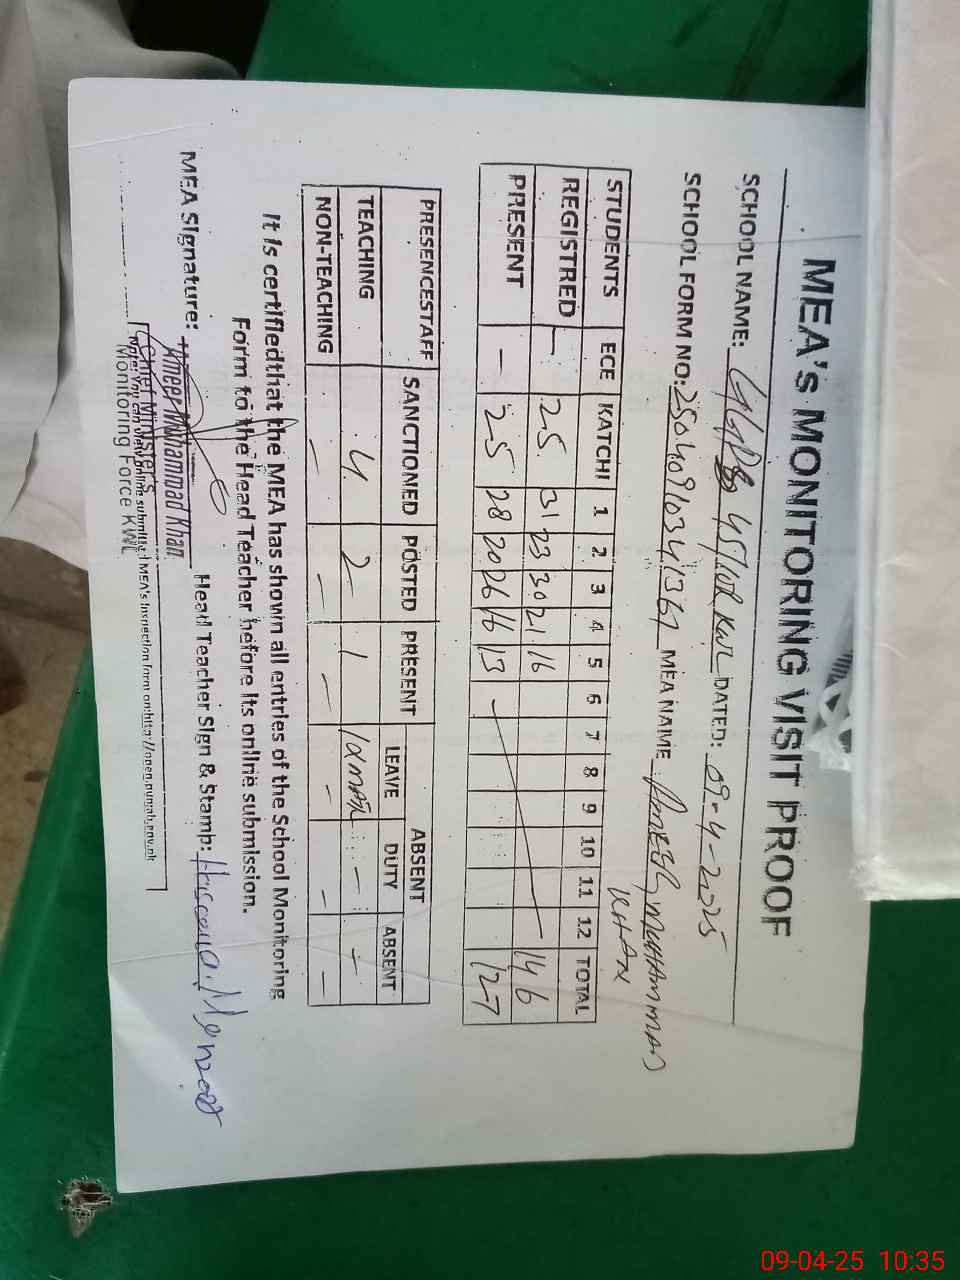 MEA's MONITORING VISIT PROOF
SCHOOL NAME: 45/10R KWL DATED: 09-4-2025
SCHOOL FORM NO: MEA NAME AMEER MUHAMMAD
KHAN
STUDENTS ECE KATCHI 1 2 3 4 5 6 7 8 9 10 11 12 TOTAL
REGISTRED - 25 31 23 30 21 16 146
PRESENT - 25 28 20 26 16 13 127
PRESENCESTAFF SANCTIONED POSTED PRESENT ABSENT
LEAVE DUTY ABSENT
TEACHING 4 2 1 - -
NON-TEACHING - - - - - -
It is certifiedthat the MEA has shown all entries of the School Monitoring
Form to the Head Teacher before its online submission.
MEA Signature: Head Teacher Sign & Stamp:
Ameer Muhammad Khan
Chief Minister's
Monitoring Force KWL
Note: You can view online submitted MEA's Inspection form on:http://open.punjab.gov.pk
09-04-25 10:35